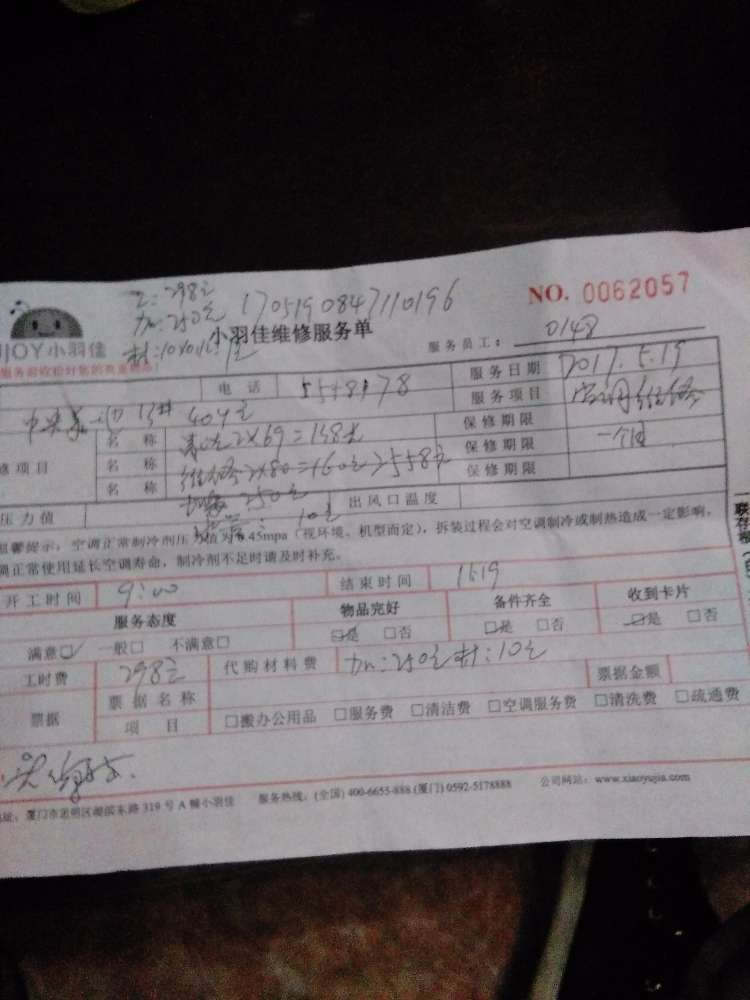 工:298元
加:250元 170519084711 0196
NO. 0062057
JOY小羽佳
小羽佳维修服务单
服务员工: 0148
电 话
服务日期 2017.5.19
服务项目 空调维修
13# 404
名 称 2×69=138元
保修期限
名 称 维修2×80=160元 558元
保修期限 一个月
名 称 250元
保修期限
压力值
10元
出风口温度
馨提示,空调正常制冷剂压 值为0.45mpa(视环境、机型而定),拆装过程会对空调制冷或制热造成一定影响,
调正常使用延长空调寿命,制冷剂不足时请及时补充。
开工时间 9:00 结束时间
服务态度 物品完好 备件齐全 收到卡片
满意□ 一般□ 不满意□ □是 □否 □是 □否 □是 □否
工时费 298元 代购材料费 加:250元 材:10元 票据金额
票据 票据名称
项 目 □搬办公用品 □服务费 □清洁费 □空调服务费 □清洗费 □疏通费
址:厦门市思明区湖滨东路 319 号 A 幢小羽佳 服务热线:(全国) 400-6655-888 (厦门) 0592-5178888 公司网站:www.xiaoyujia.com